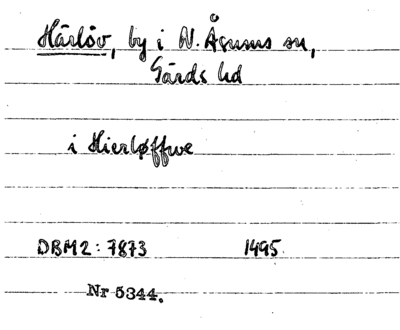 Härlöv, by i N. Åsums sn,
Gärds hd
i Hierløffwe
DBM2: 7873 1495
Nr 5344.